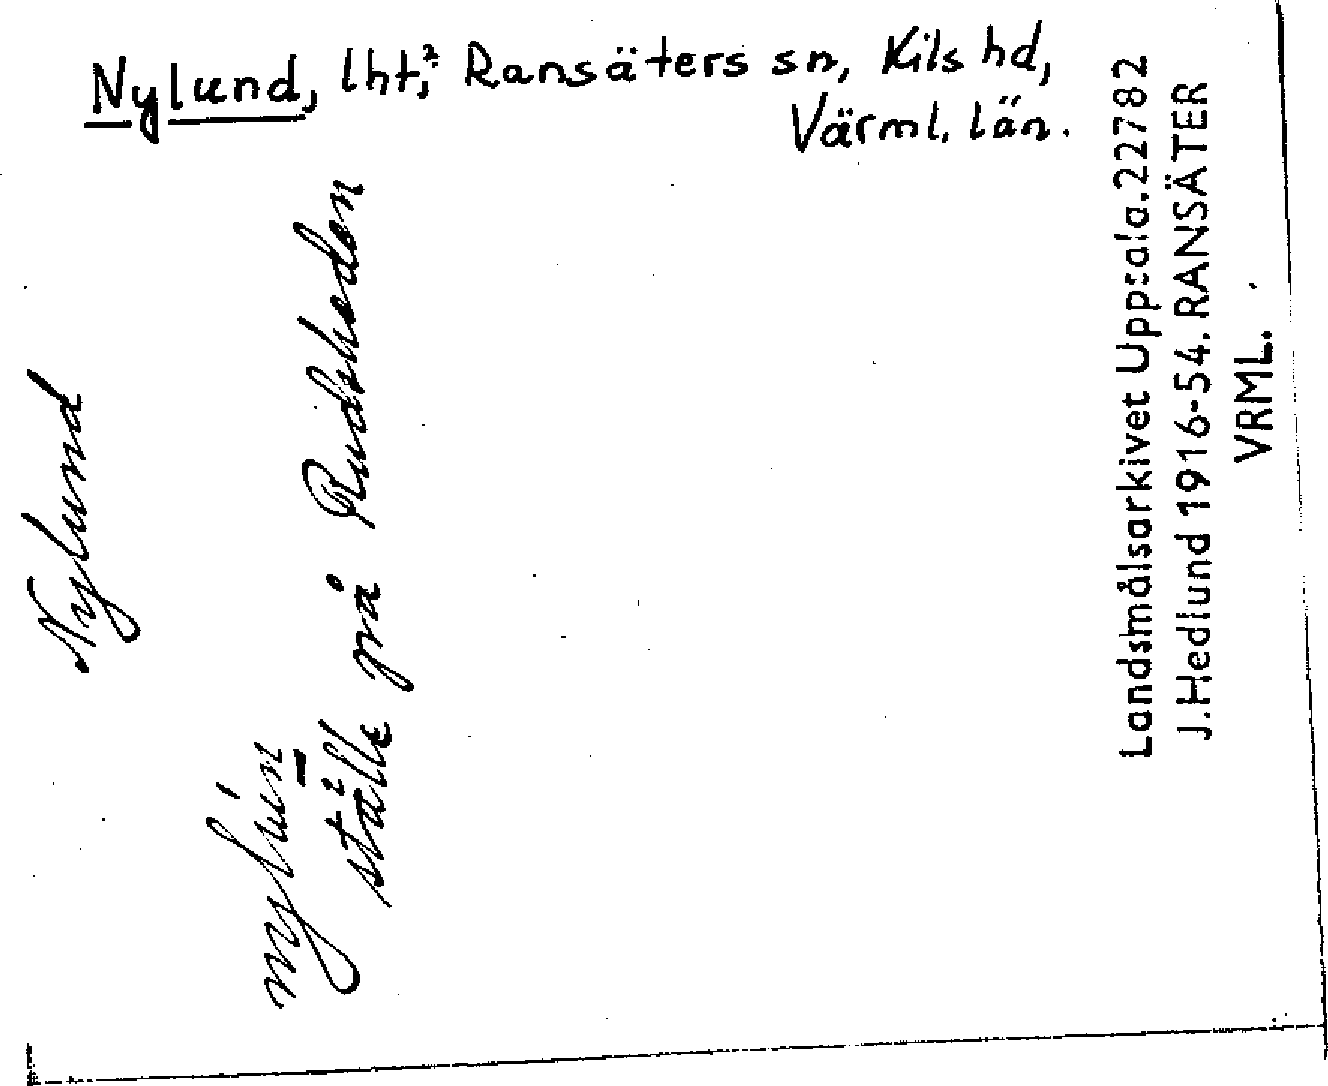 Nylund, lht,² Ransäters sn, Kils hd,
Värml. län.
Nylund
nylún
ställe på Rudsheden
Landsmålsarkivet Uppsala. 22782
J. Hedlund 1916-54. RANSÄTER
VRML.